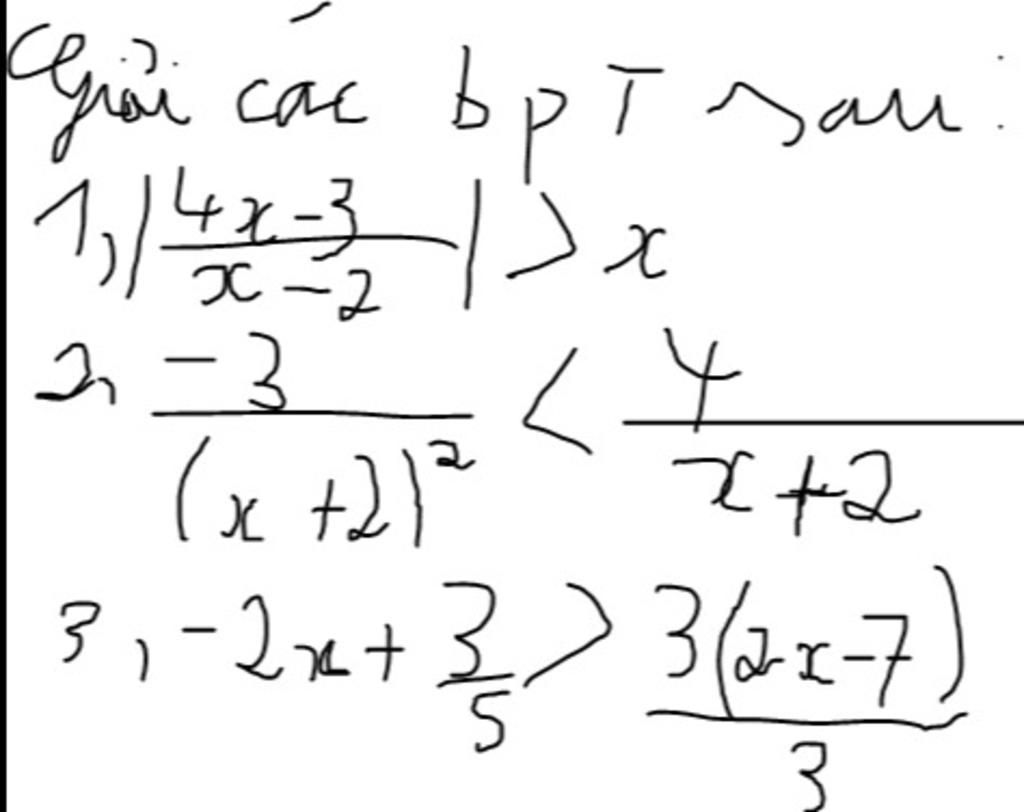 Giải các bpT sau:
1, |(4x-3)/(x-2)| > x
2, -3/(x+2)² < 4/(x+2)
3, -2x + 3/5 > 3(2x-7)/3